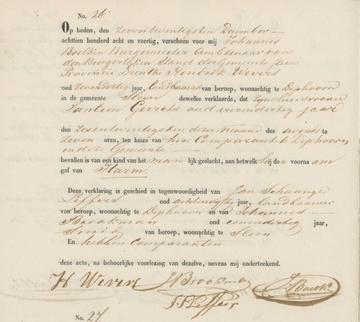 No. 26
Op heden, den zevenentwintigsten December
achttien honderd acht en veertig, verscheen voor mij Johannes
Boelken Burgemeester Ambtenaar van
den Burgerlijken Stand der Gemeente Sleen
Provincie Drenthe Hendrik Wevers
oud jaar, landbouwer van beroep, woonachtig te Diphoorn
in de gemeente Sleen dewelke verklaarde, dat zijne huisvrouw
Jantien Gerrits oud jaar
den zesentwintigsten dezer maand des avonds te
zeven uren, ten huize van hem Comparant te Diphoorn
in deze Gemeente
bevallen is van een kind van het manlijk geslacht, aan hetwelk hij de voornaam
gaf van Harm.
Deze verklaring is geschied in tegenwoordigheid van Jan Schaange
Peffers oud jaar, landbouwer
van beroep, woonachtig te Diphoorn en van Johannes
Brookman oud jaar,
Smid van beroep, woonachtig te Sleen
En hebben Comparanten
deze acte, na behoorlijke voorlezing van dezelve, nevens mij onderteekend.
H Wevers J Brookman
J S Peffers
No. 27